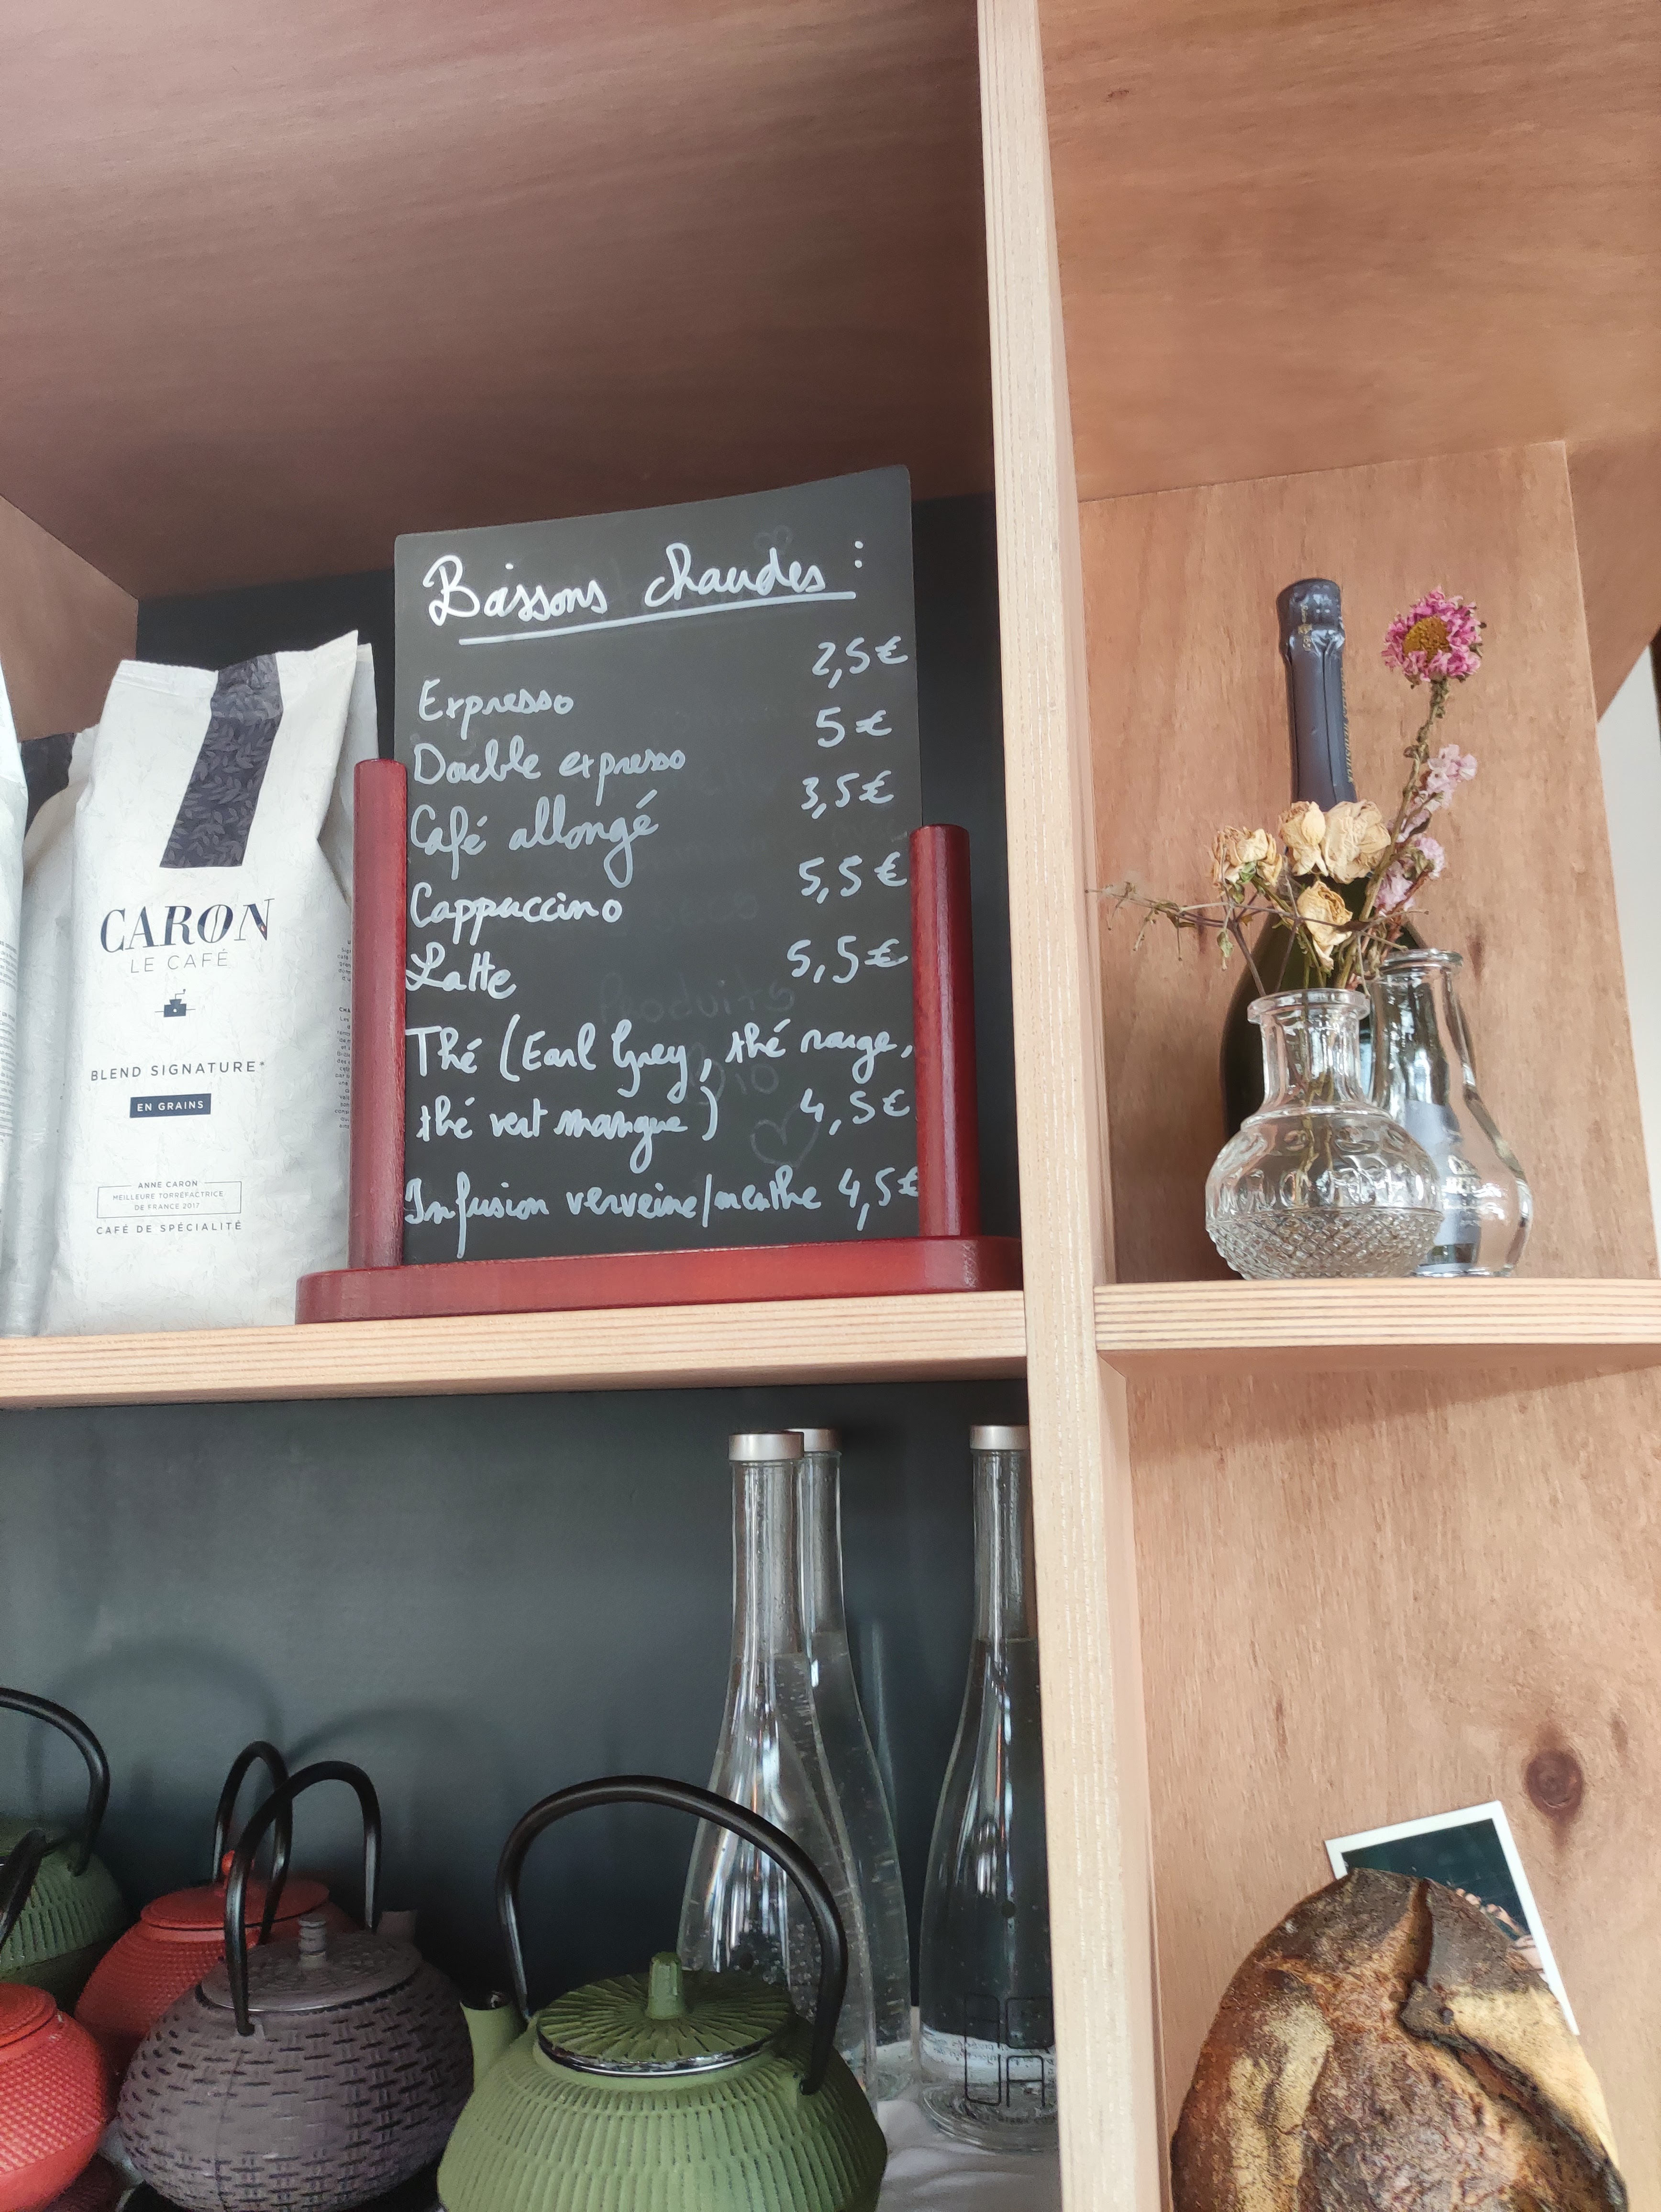 Boissons chaudes :
Expresso 2,5€
Double expresso 5€
Café allongé 3,5€
Cappuccino 5,5€
Latte 5,5€
Thé (Earl Grey, thé rouge,
thé vert mangue) 4,5€
Infusion verveine/menthe 4,5€
Produits
CARON
LE CAFÉ
BLEND SIGNATURE*
EN GRAINS
ANNE CARON
MEILLEURE TORRÉFACTRICE
DE FRANCE 2017
CAFÉ DE SPÉCIALITÉ